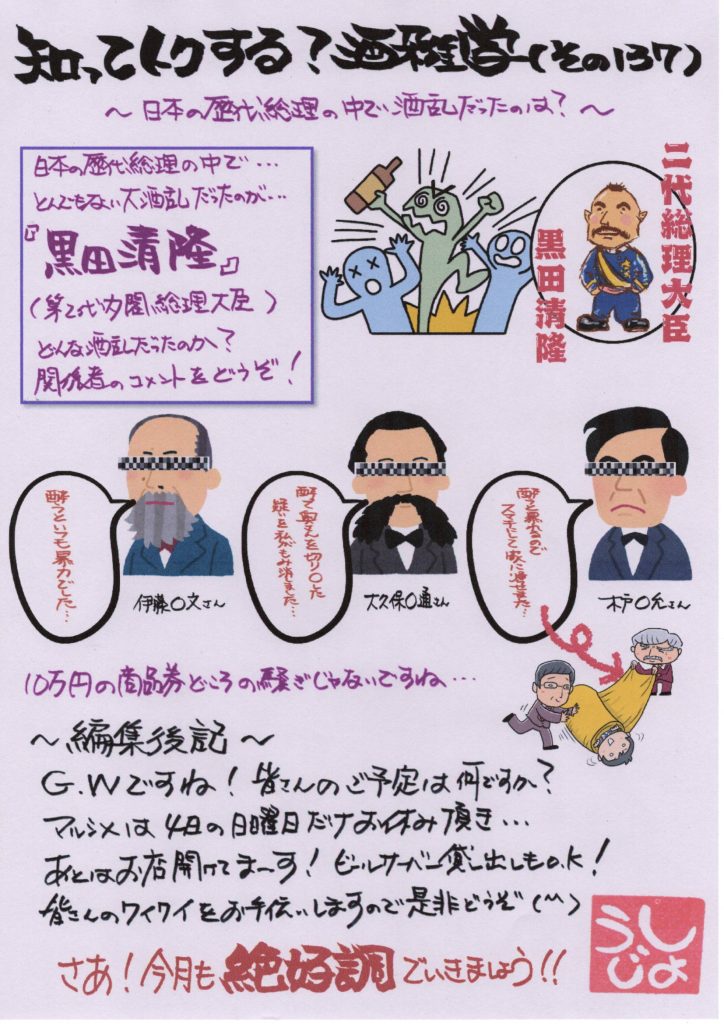 知ってトクする？酒雑学（その137）
～日本の歴代総理の中で酒乱だったのは？～
日本の歴代総理の中で…
とんでもない大酒乱だったのが…
『黒田清隆』
（第2代内閣総理大臣）
どんな酒乱だったのか？
関係者のコメントをどうぞ！
二代総理大臣
黒田清隆
酔うといつも暴力でした…
伊藤〇文さん
酔って奥さんを切り〇した
疑いを私がもみ消ました…
大久保〇通さん
酔うと暴れるので
スマキにして家に返せました…
木戸〇允さん
10万円の商品券どころの騒ぎじゃないですね…
～編集後記～
G.Wですね！皆さんのご予定は何ですか？
マルシメは4日の日曜日だけお休み頂き…
あとはお店開けてまーす！ビールサーバー貸し出しもO.K！
皆さんのワイワイをお手伝いしますので是非どうぞ(^^)
さあ！今月も絶好調でいきましょう!!
しょうじ